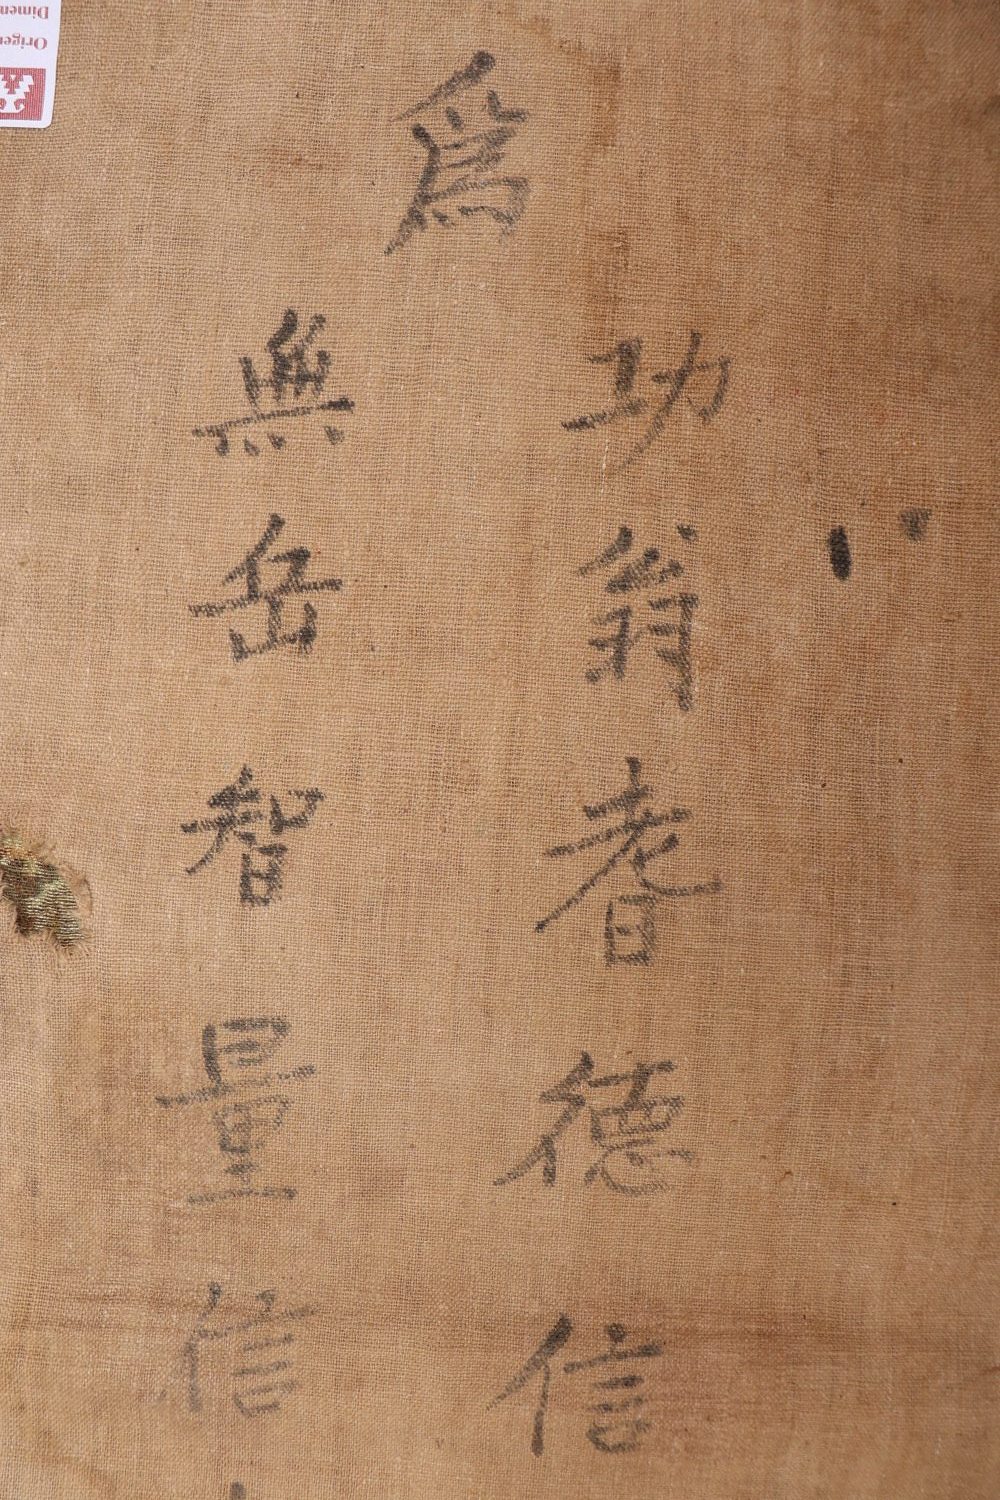 為
功翁耆德信
無岳智量信
Origen
Dimen